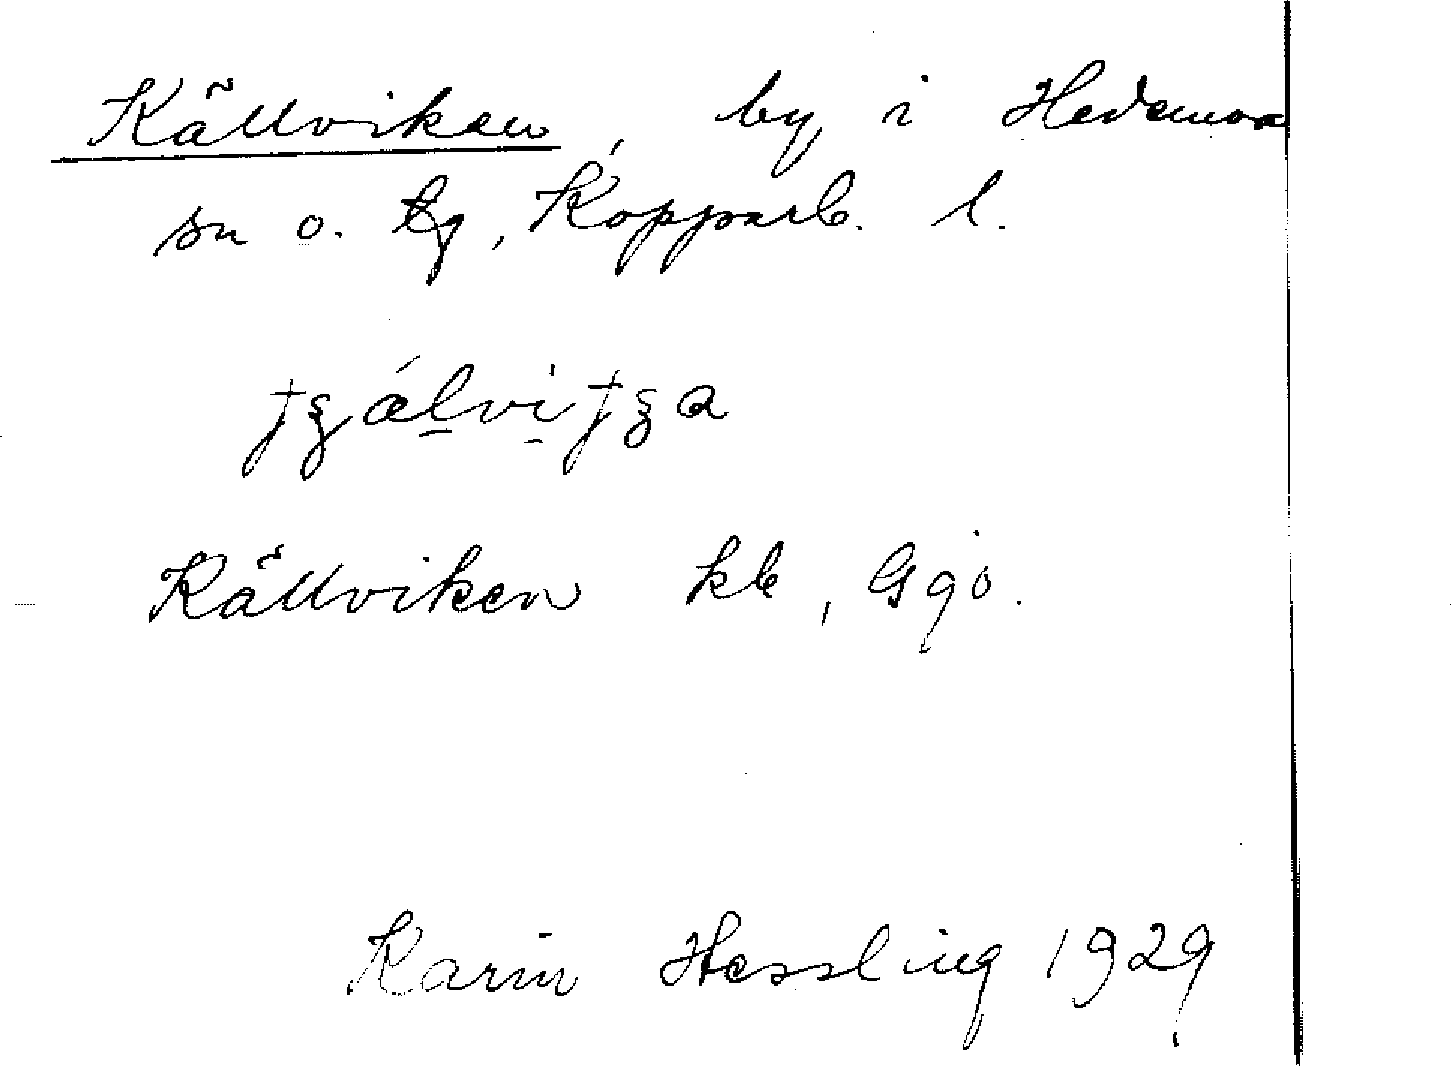 Källviken, by i Hedemora
sn o. tg, Kopparb. l.
Källviken kb, Gjö.
Karin Hessling 1929